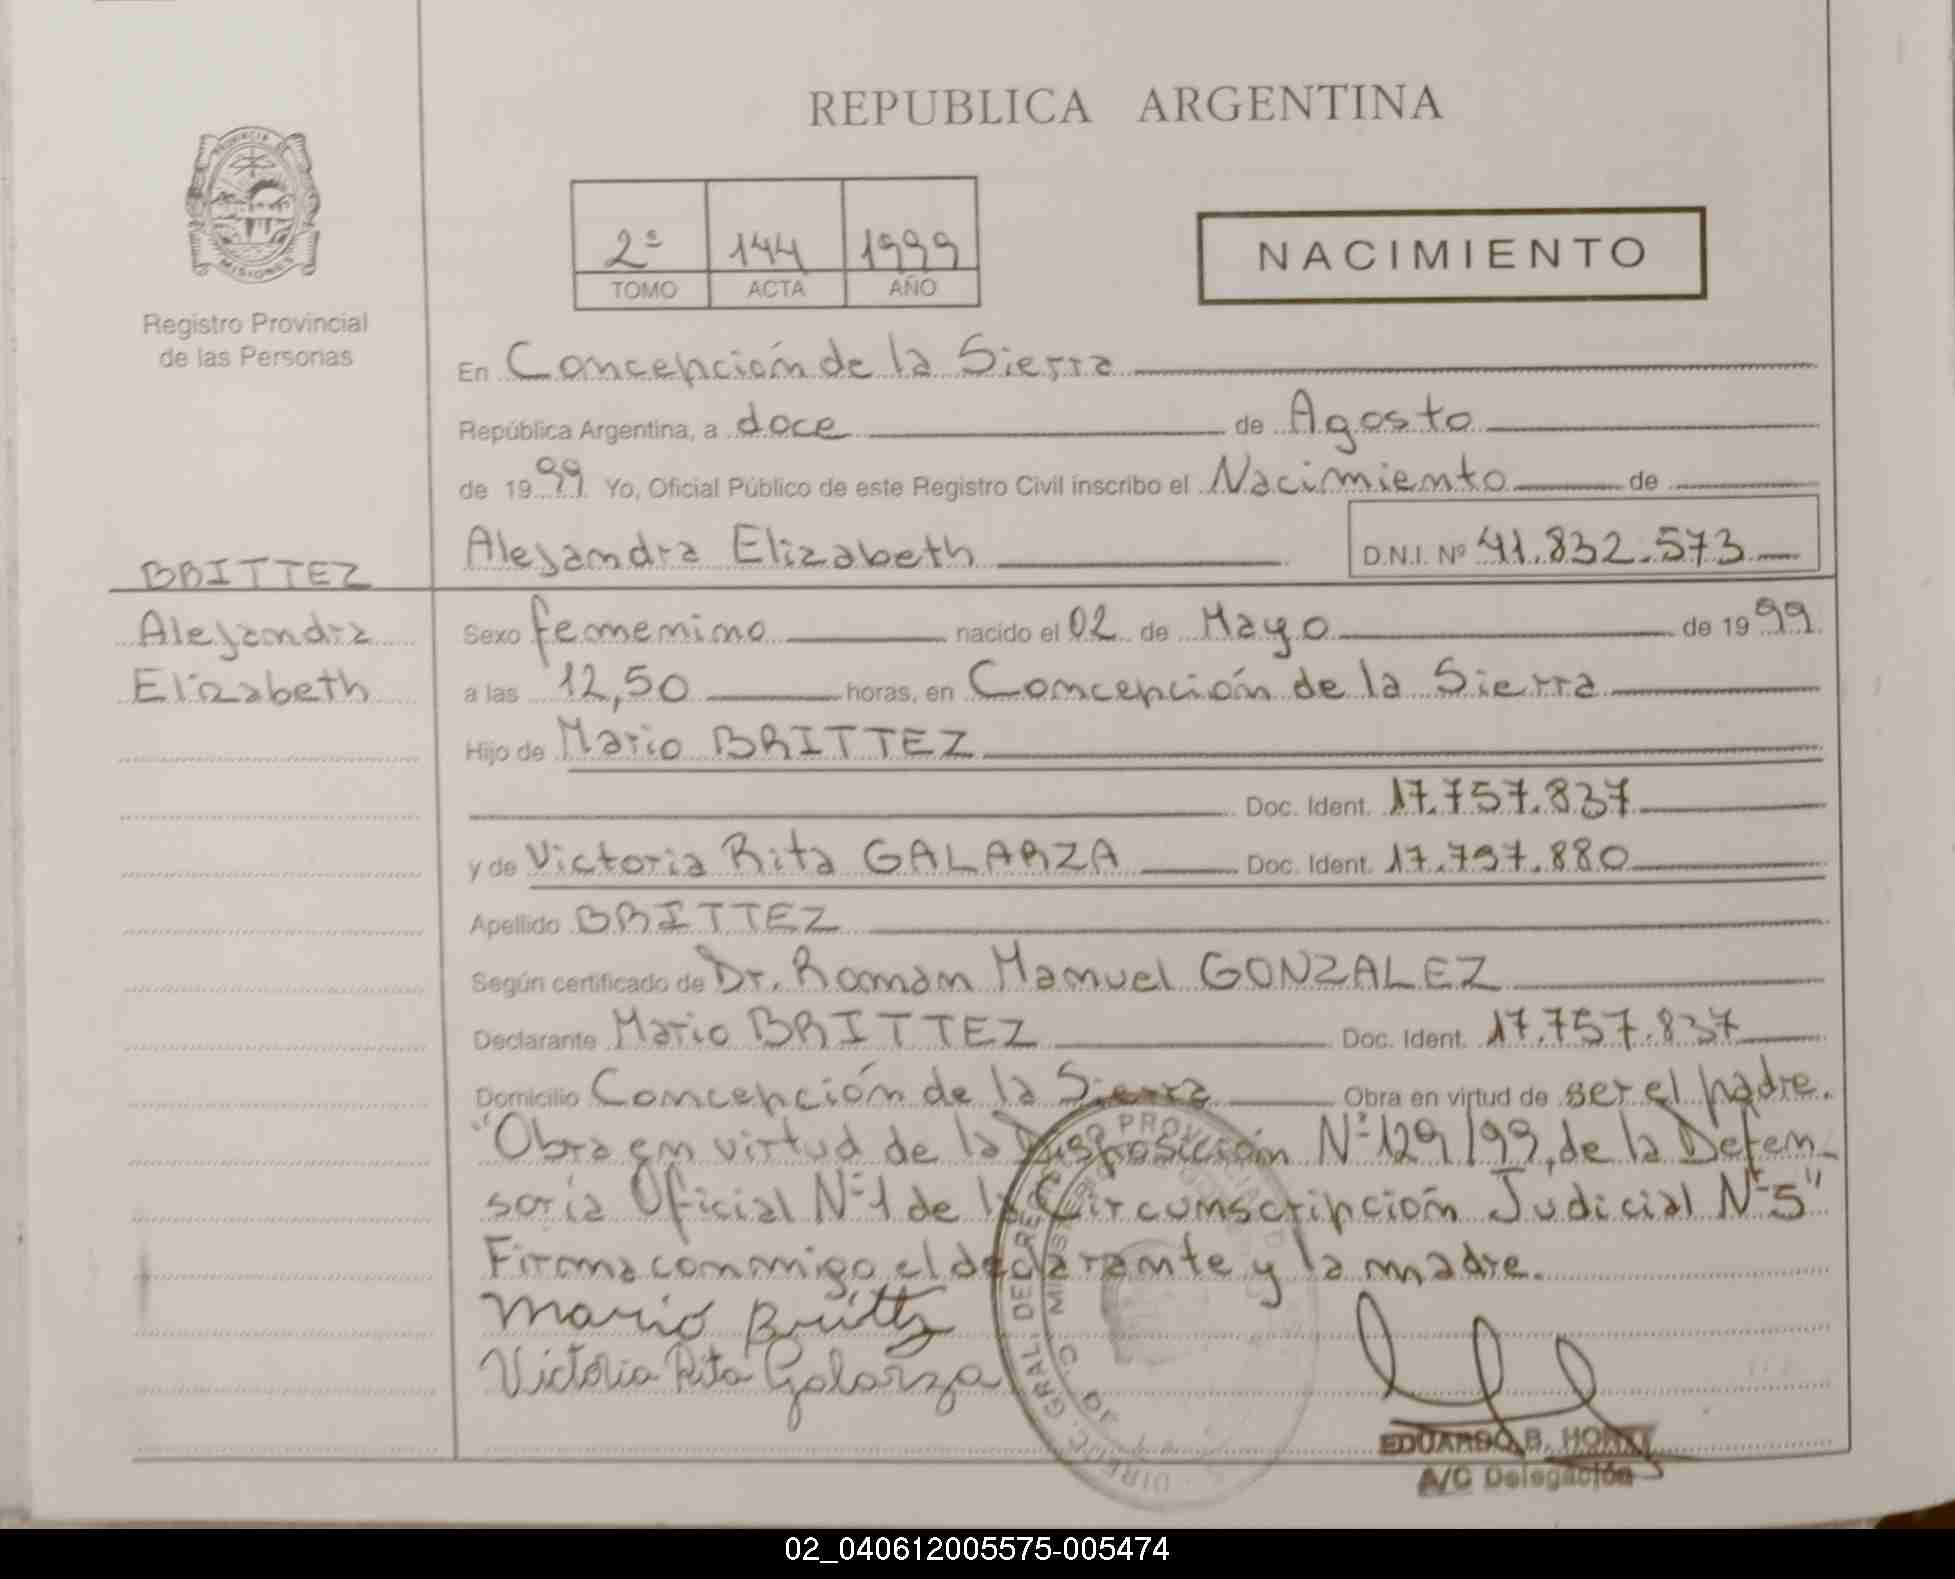 REPUBLICA ARGENTINA
PROVINCIA DE
MISIONES
Registro Provincial
de las Personas
2º 144 1999
TOMO ACTA AÑO
NACIMIENTO
En Concepción de la Sierra
República Argentina, a doce de Agosto
de 1999 Yo, Oficial Público de este Registro Civil inscribo el Nacimiento de
Alejandra Elizabeth D.N.I. Nº 41.832.573
BRITTEZ
Alejandra
Elizabeth
Sexo femenino nacido el 02 de Mayo de 1999
a las 12,50 horas, en Concepción de la Sierra
Hijo de Mario BRITTEZ
Doc. Ident. 17.757.837
y de Victoria Rita GALARZA Doc. Ident. 17.797.880
Apellido BRITTEZ
Según certificado de Dr. Roman Manuel GONZALEZ
Declarante Mario BRITTEZ Doc. Ident. 17.757.837
Domicilio Concepción de la Sierra Obra en virtud de ser el padre.
"Obra en virtud de la Disposición Nº 129/99, de la Defen-
soría Oficial Nº 1 de la Circunscripción Judicial Nº 5"
Firma conmigo el declarante y la madre.
Mario Brittz
Victoria Rita Galarza
EDUARDO B.
A/C Delegación
02_040612005575-005474